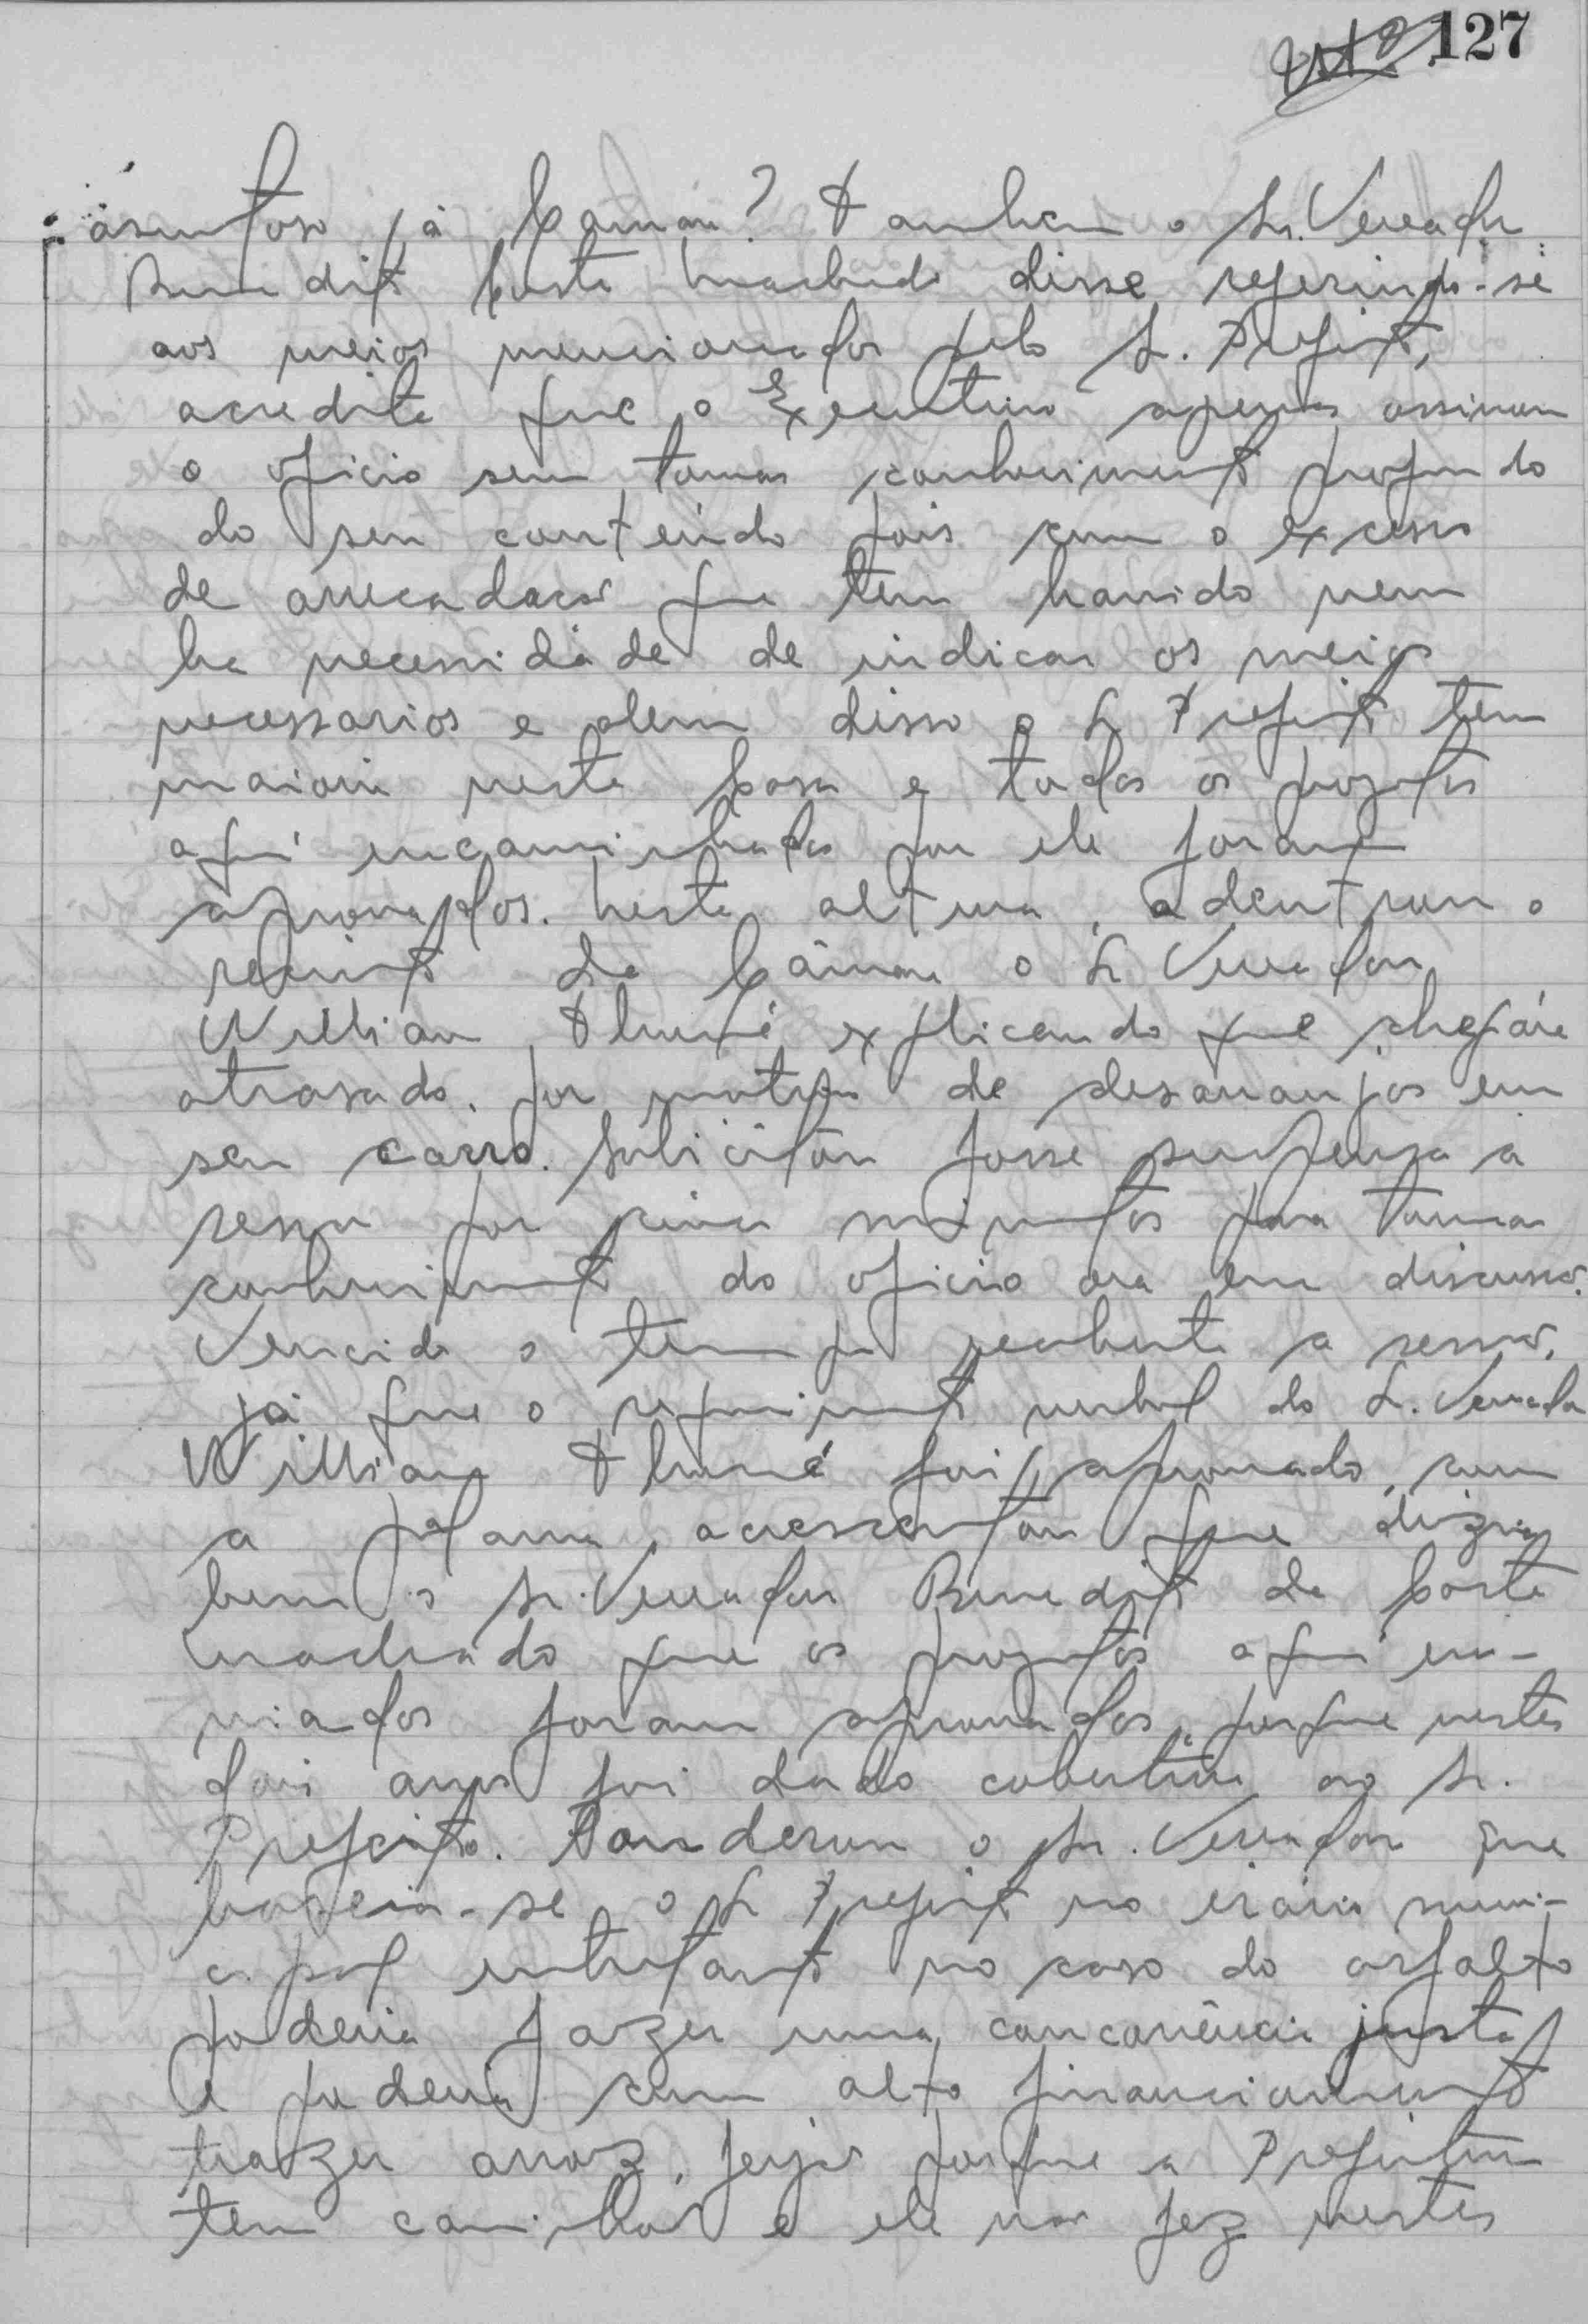 127
assuntos já Camara? Tambem o Sr. Vereador
Benedito Costa Machado disse referindo-se
aos meios mencionados pelo Sr. Prefeito,
acredita que o Executivo apenas assinou
o oficio sem tomar conhecimento profundo
do seu conteúdo pois com o excesso
de arrecadação que tem havido nem
ha necessidade de indicar os meios
necessarios e alem disso o Sr Prefeito tem
maioria nesta Casa e todos os projetos
aqui encaminhados por ele foram
aprovados. Nesta altura, adentrou o
recinto da Câmara o Sr Vereador
Willian Thumé explicando que chegára
atrasado por motivos de desarranjos em
seu carro. Solicitou fosse suspensa a
sessão por cinco minutos para tomar
conhecimento do oficio ora em discussão.
Vencido o tempo reaberta a sessão,
já que o requerimento verbal do Sr. Vereador
Willian Thumé foi aprovado, com
a palavra, acrescentou que dizia
bem o Sr. Vereador Benedito da Costa
Machado que os projetos aqui en-
viados foram aprovados, porque nestes
dois anos foi dado cobertura ao Sr.
Prefeito. Ponderou o Sr. Vereador que
baseia-se o Sr Prefeito no erário muni-
cipal entretanto no caso do asfalto
poderia fazer uma concorrência justa
e poderia com alto financiamento
trazer arroz, feijão porque a Prefeitura
tem caminhão e ele não fez nestes